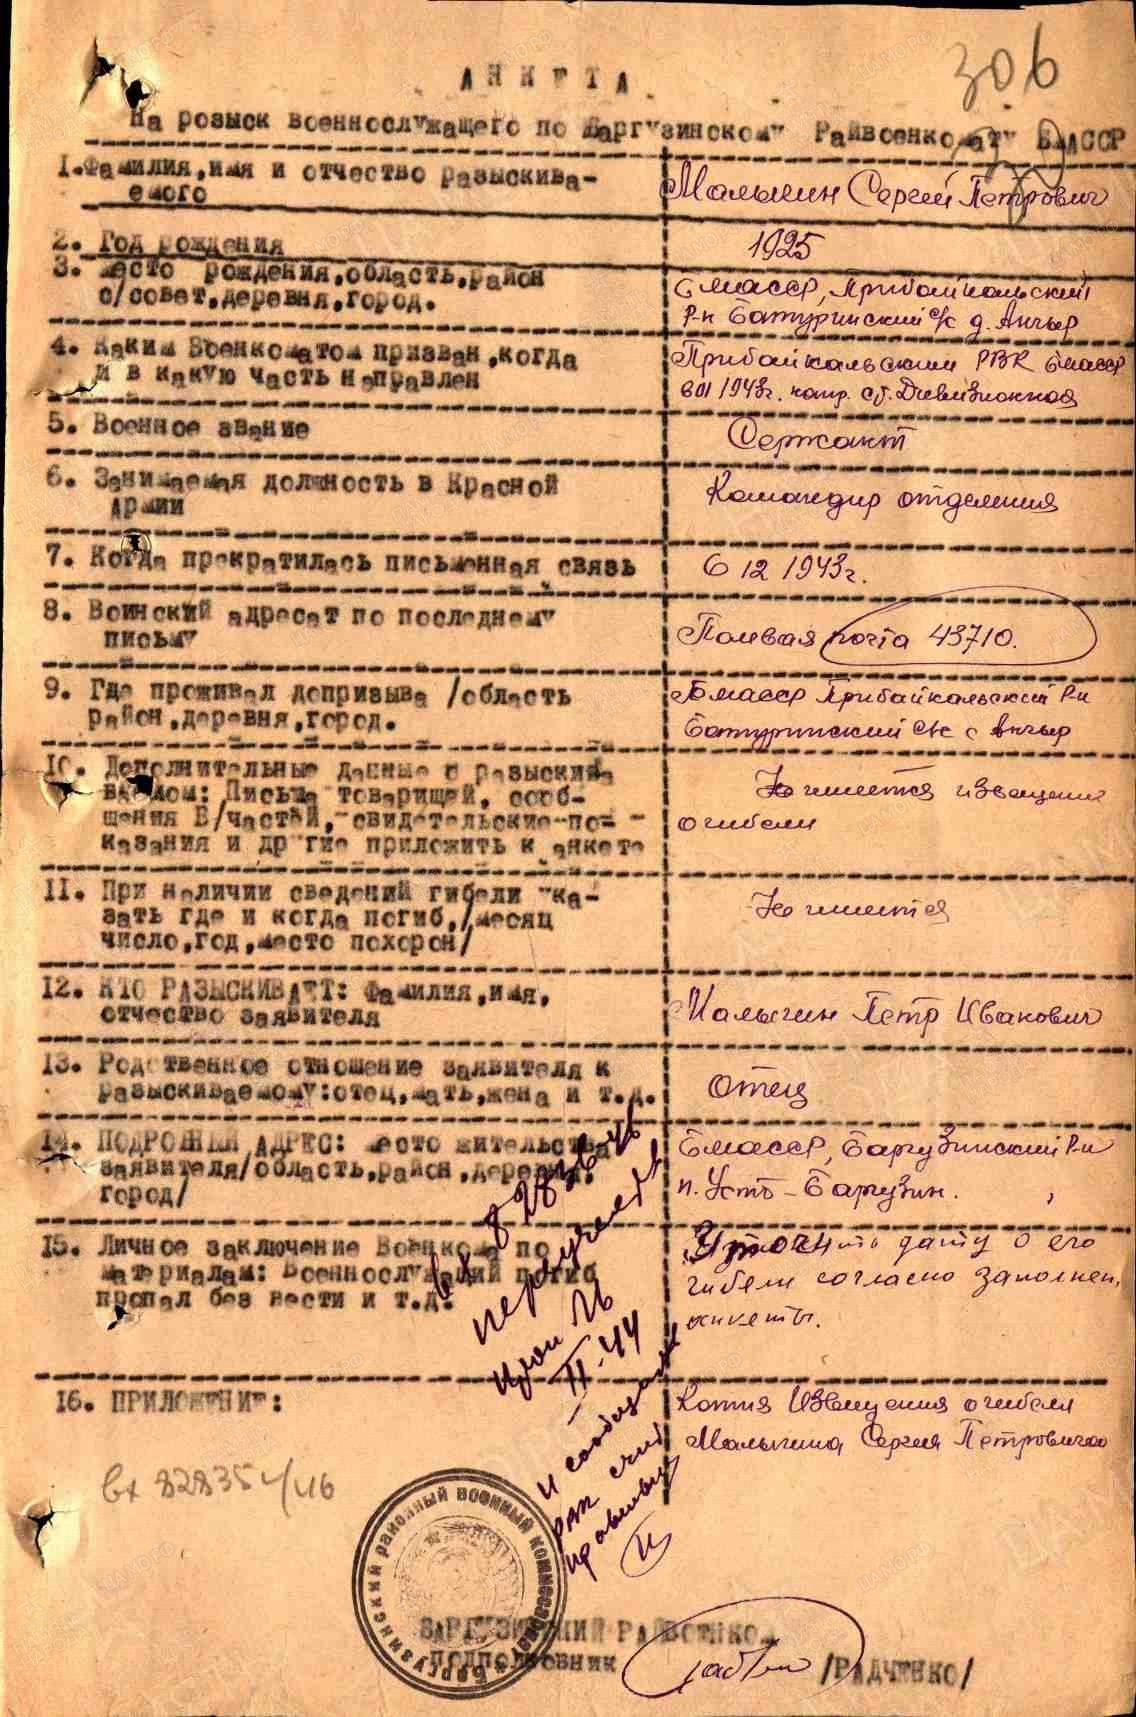 306
АНКЕТА
На розыск военнослужащего по Баргузинскому Райвоенкомату БМАССР
1.Фамилия,имя и отчество разыскива-
емого
Малыгин Сергей Петрович
2. Год рождения
1925
3. Место рождения,область,район
с/совет,деревня,город.
БМАССР, Прибайкальский
р-н Батуринский с/с д. Ангыр
4. Каким Военкоматом призван,когда
и в какую часть направлен
Прибайкальским РВК БМАССР
в 01 1943г. напр. ст. Дивизионная
5. Военное звание
Сержант
6. Занимаемая должность в Красной
Армии
Командир отделения
7. Когда прекратилась письменная связь
6 12 1943г.
8. Воинский адресат по последнему
письму
Полевая почта 43710.
9. Где проживал допризыва /область
район,деревня,город.
БМАССР Прибайкальский р-н
Батуринский с/с с Ангыр
10. Дополнительные данные о разыски-
ваемом: Письма товарищей, сооб-
щения В/частей, свидетельские по-
казания и другие приложить к анкете
Не имеется извещения
о гибели
11. При наличии сведений гибели ука-
зать где и когда погиб,/месяц
число,год,место похорон/
Не имеется
12. КТО РАЗЫСКИВАЕТ: Фамилия,имя,
отчество заявителя
Малыгин Петр Иванович
13. Родственное отношение заявителя к
разыскиваемому:отец,мать,жена и т.д.
Отец
14. ПОДРОБНЫЙ АДРЕС: место жительства
заявителя/область,район,деревня,
город/
БМАССР, Баргузинский р-н
п. Усть-Баргузин.
15. Личное заключение Военкома по
материалам: Военнослужащий погиб
пропал без вести и т.д.
Уточнить дату о его
гибели согласно заполнен.
анкеты.
16. ПРИЛОЖЕНИЕ:
Копия Извещения о гибели
Малыгина Сергея Петровича
II-44
и сообщает
вх 82835 /46
Баргузинский районный военный комиссариат
БАРГУЗИНСКИЙ РАЙВОЕНКОМ
ПОДПОЛКОВНИК /РАДЧЕНКО/